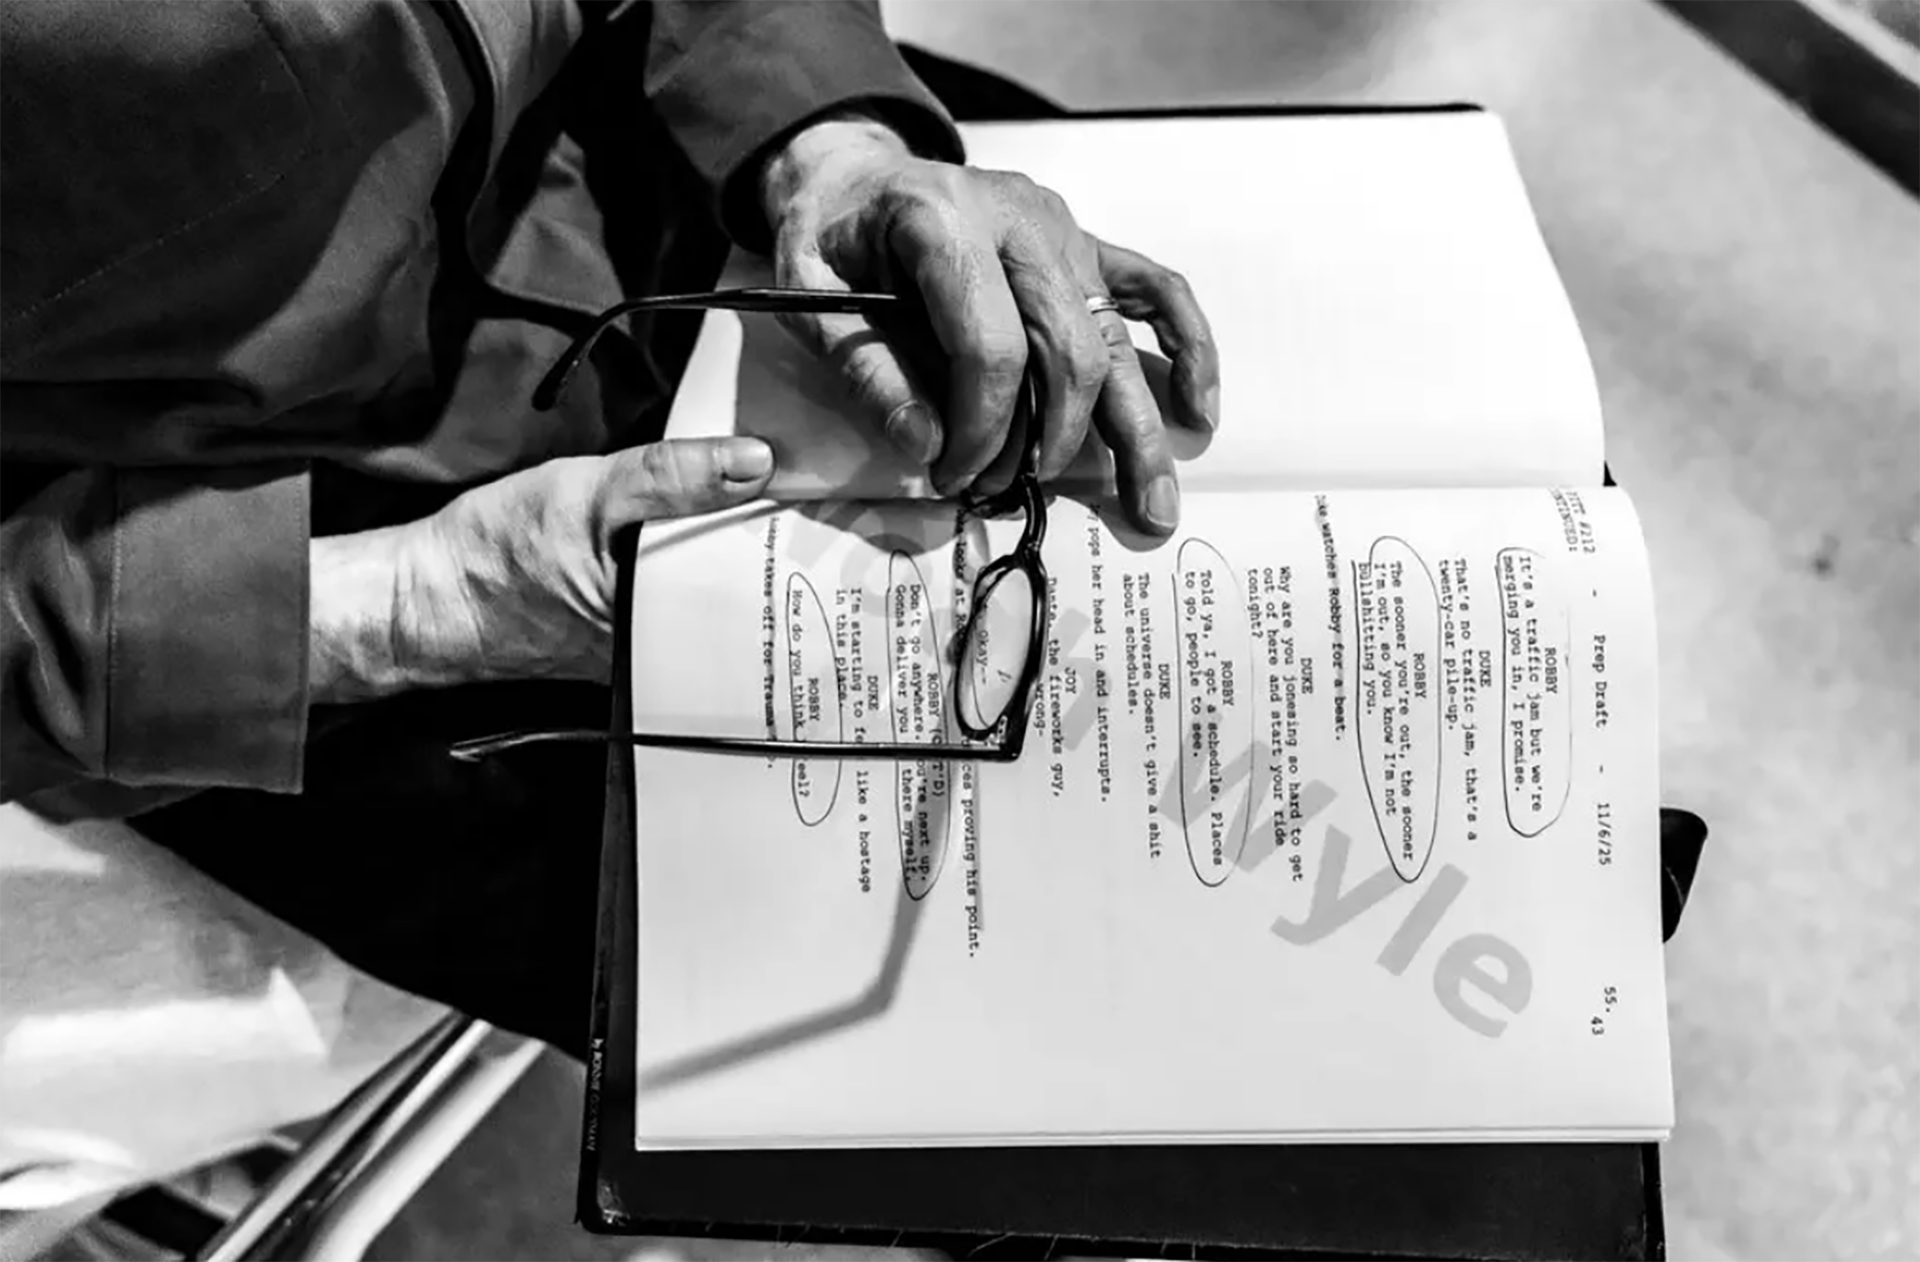 PITT #212 - Prep Draft - 11/6/25 55.
CONTINUED: 43
ROBBY
It's a traffic jam but we're
merging you in, I promise.
DUKE
That's no traffic jam, that's a
twenty-car pile-up.
ROBBY
The sooner you're out, the sooner
I'm out, so you know I'm not
bullshitting you.
Duke watches Robby for a beat.
DUKE
Why are you jonesing so hard to get
out of here and start your ride
tonight?
ROBBY
Told ya, I got a schedule. Places
to go, people to see.
DUKE
The universe doesn't give a shit
about schedules.
Joy pops her head in and interrupts.
JOY
Dante, the fireworks guy,
wrong-
Okay--
looks at proving his point.
ROBBY
Don't go anywhere. You're next up.
Gonna deliver you there myself.
DUKE
I'm starting to feel like a hostage
in this place.
Robby takes off for Trauma
ROBBY
How do you think feel?
Noah Wyle
by RONNIE